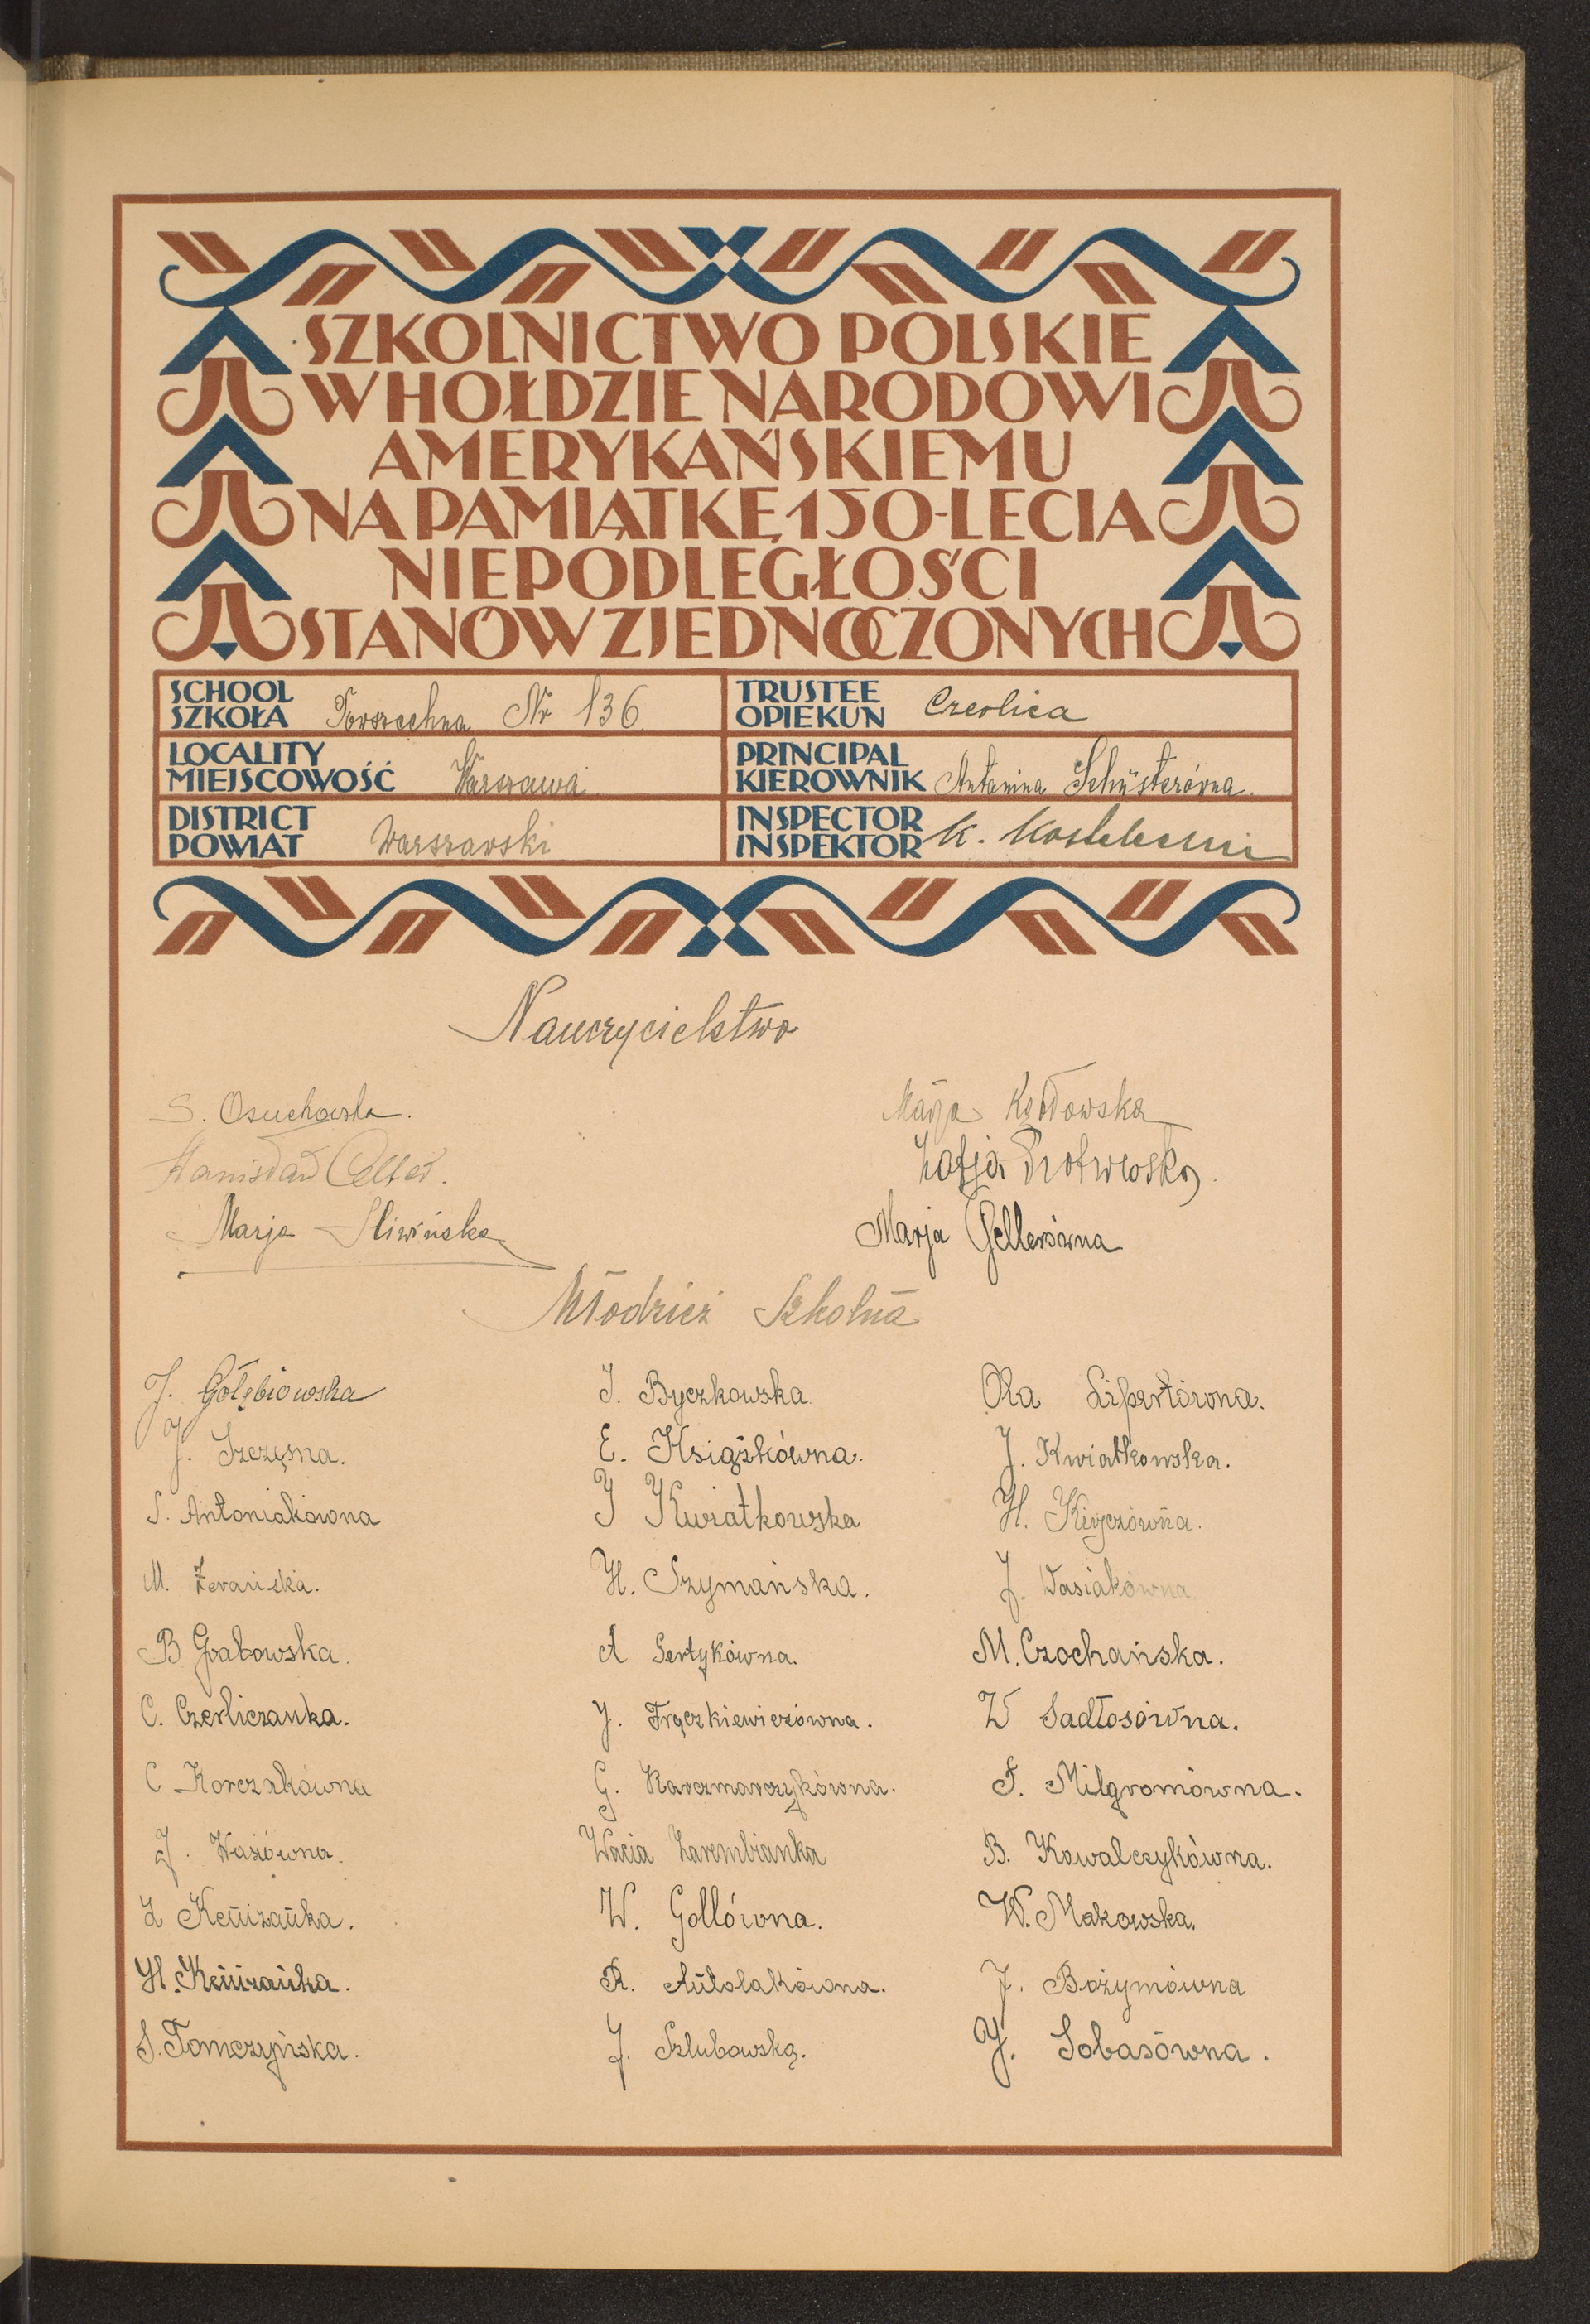 SZKOLNICTWO POLSKIE
W HOŁDZIE NARODOWI
AMERYKAŃSKIEMU
NA PAMIĄTKĘ 150-LECIA
NIEPODLEGŁOŚCI
STANÓW ZJEDNOCZONYCH
SCHOOL
SZKOŁA Powszechna Nr 136
TRUSTEE
OPIEKUN
LOCALITY
MIEJSCOWOŚĆ Warszawa
PRINCIPAL
KIEROWNIK Antonina Schüsterówna.
DISTRICT
POWIAT Warszawski
INSPECTOR
INSPEKTOR K.
Nauczycielstwo
S. Osuchowska.
Stanisław
Marja Śliwińska
Marja
Zofja Piotrowska
Marja Gellerówna
Młodzież Szkolna
J. Gołębiowska
J. Szczęsna.
S. Antoniakówna
M. Żerańska.
B Grabowska.
C. Czerliczanka.
C Korczakówna
J. Wasiówna.
Z Kenizanka.
H. Kenizanka.
S. Tomczyńska.
J. Byczkowska
E. Książkówna.
J Kwiatkowska
H. Szymańska.
A Sertykówna.
J. Frączkiewiczówna.
G. Karczmarczykówna.
Wacia Zarembianka
W. Gollówna.
R. Antolakówna.
J. Szlubowska.
Ola Lipertówna.
J. Kwiatkowska.
H. Kieyczówna.
J. Wasiakówna
M. Czochańska.
W Sadłosówna.
F. Milgromówna.
B. Kowalczykówna.
W. Makowska.
J. Bożymówna
J. Sobasówna.